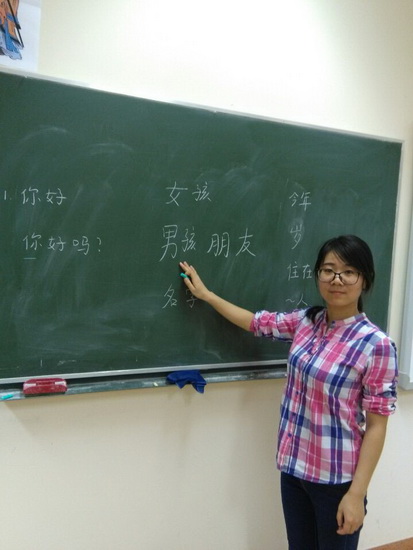 1. 你好
你好吗?
女孩
男孩 朋友
名字
今年
岁
住在
~人